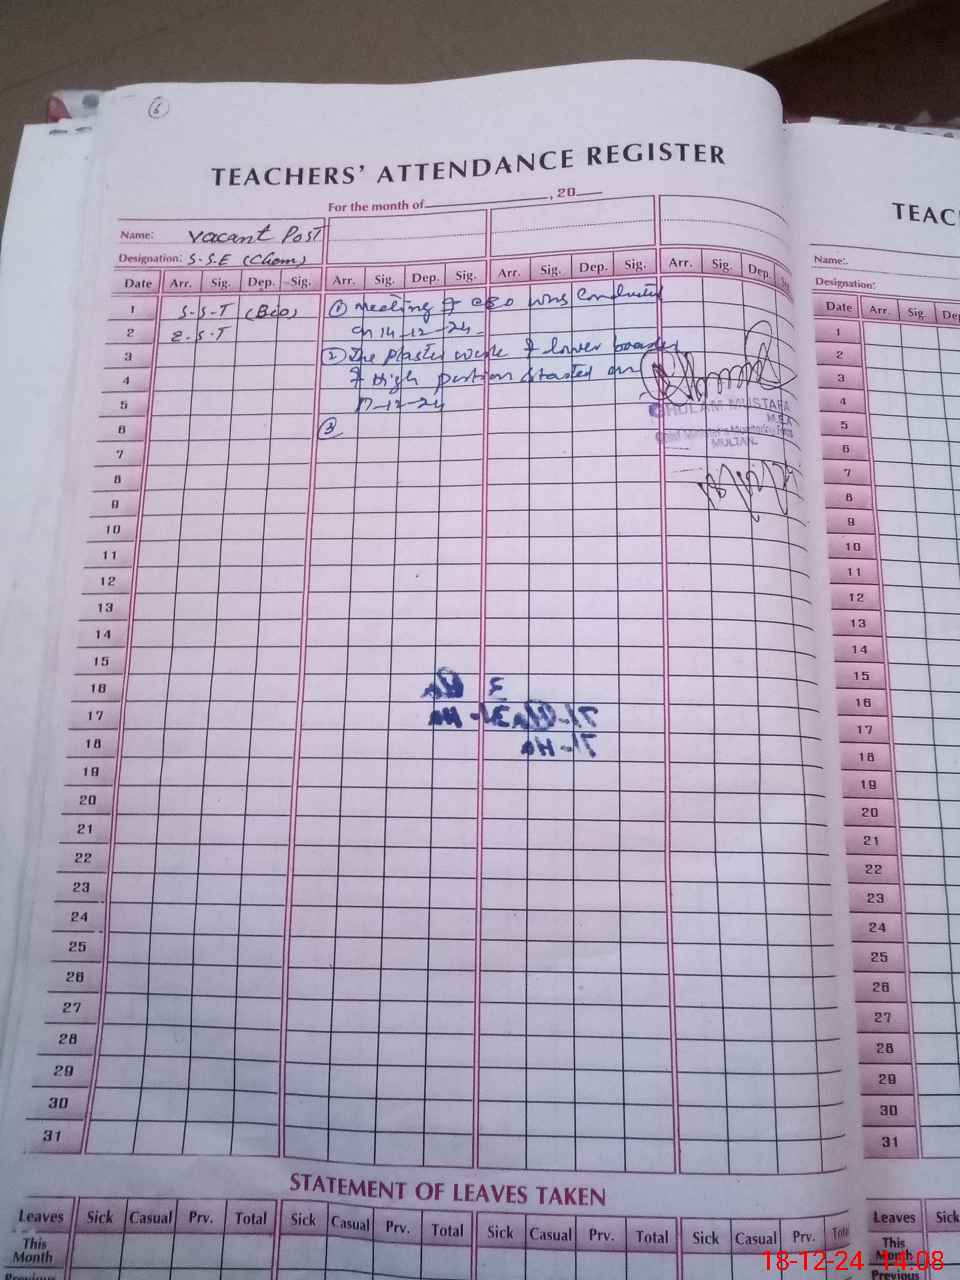 6
TEACHERS' ATTENDANCE REGISTER
For the month of , 20
Name: Vacant Post
Designation: S.S.E (Chem)
Date Arr. Sig. Dep. Sig. Arr. Sig. Dep. Sig. Arr. Sig. Dep. Sig. Arr. Sig. Dep. Sig.
1 S.S.T (Bio) ① Meeting of was conducted
2 E.S.T on 14-12-24
3 ② The plaster work of lower
4 of High portion started on
5 17-12-24
GHULAM MUSTAFA
M.E.A
Chief Minister's Monitoring Force
MULTAN.
6 ③
7
8
9
10
11
12
13
14
15
16
17
18
19
20
21
22
23
24
25
26
27
28
29
30
31
STATEMENT OF LEAVES TAKEN
Leaves Sick Casual Prv. Total Sick Casual Prv. Total Sick Casual Prv. Total Sick Casual Prv. Total
This Month
Previous
TEAC
Name:
Designation:
Date Arr. Sig. Dep
1
2
3
4
5
6
7
8
9
10
11
12
13
14
15
16
17
18
19
20
21
22
23
24
25
26
27
28
29
30
31
Leaves Sick
This Month
Previous
18-12-24 14:08